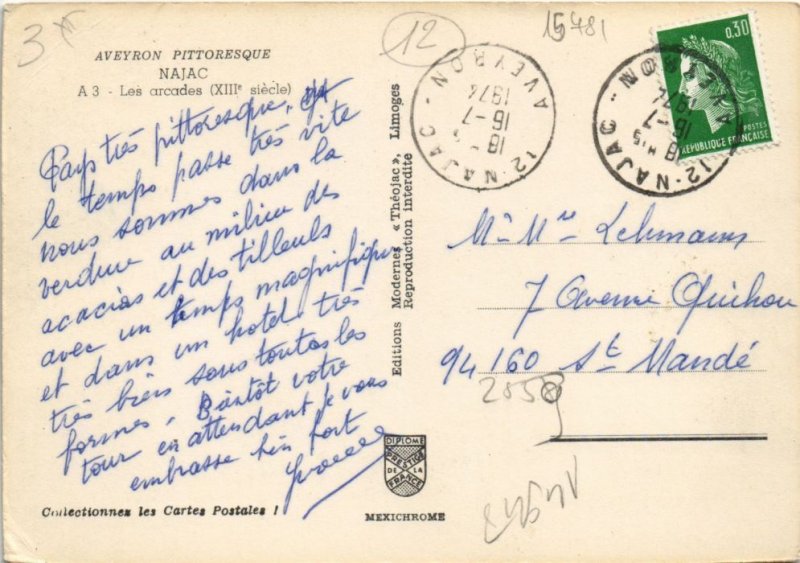 3 F
12
15481
AVEYRON PITTORESQUE
NAJAC
A 3 - Les arcades (XIIIe siècle)
Pays très pittoresque, et
le temps passe très vite
nous sommes dans la
verdure au milieu des
acacias et des tilleuls
avec un temps magnifique
et dans un hotel très
très bien sous toutes les
formes. Bientôt votre
tour en attendant je vous
embrasse bien fort
Collectionnez les Cartes Postales !
Editions Modernes « Théojac », Limoges
Reproduction interdite
DIPLOME
PRESTIGE
DE LA
FRANCE
MEXICHROME
12 - NAJAC - AVEYRON
18 H
16-7
1974
12 - NAJAC
18 H 15
16-7
1974
0,30
POSTES
REPUBLIQUE FRANÇAISE
Mr Mme Lehmann
7 Avenue Quihou
94160 St Mandé